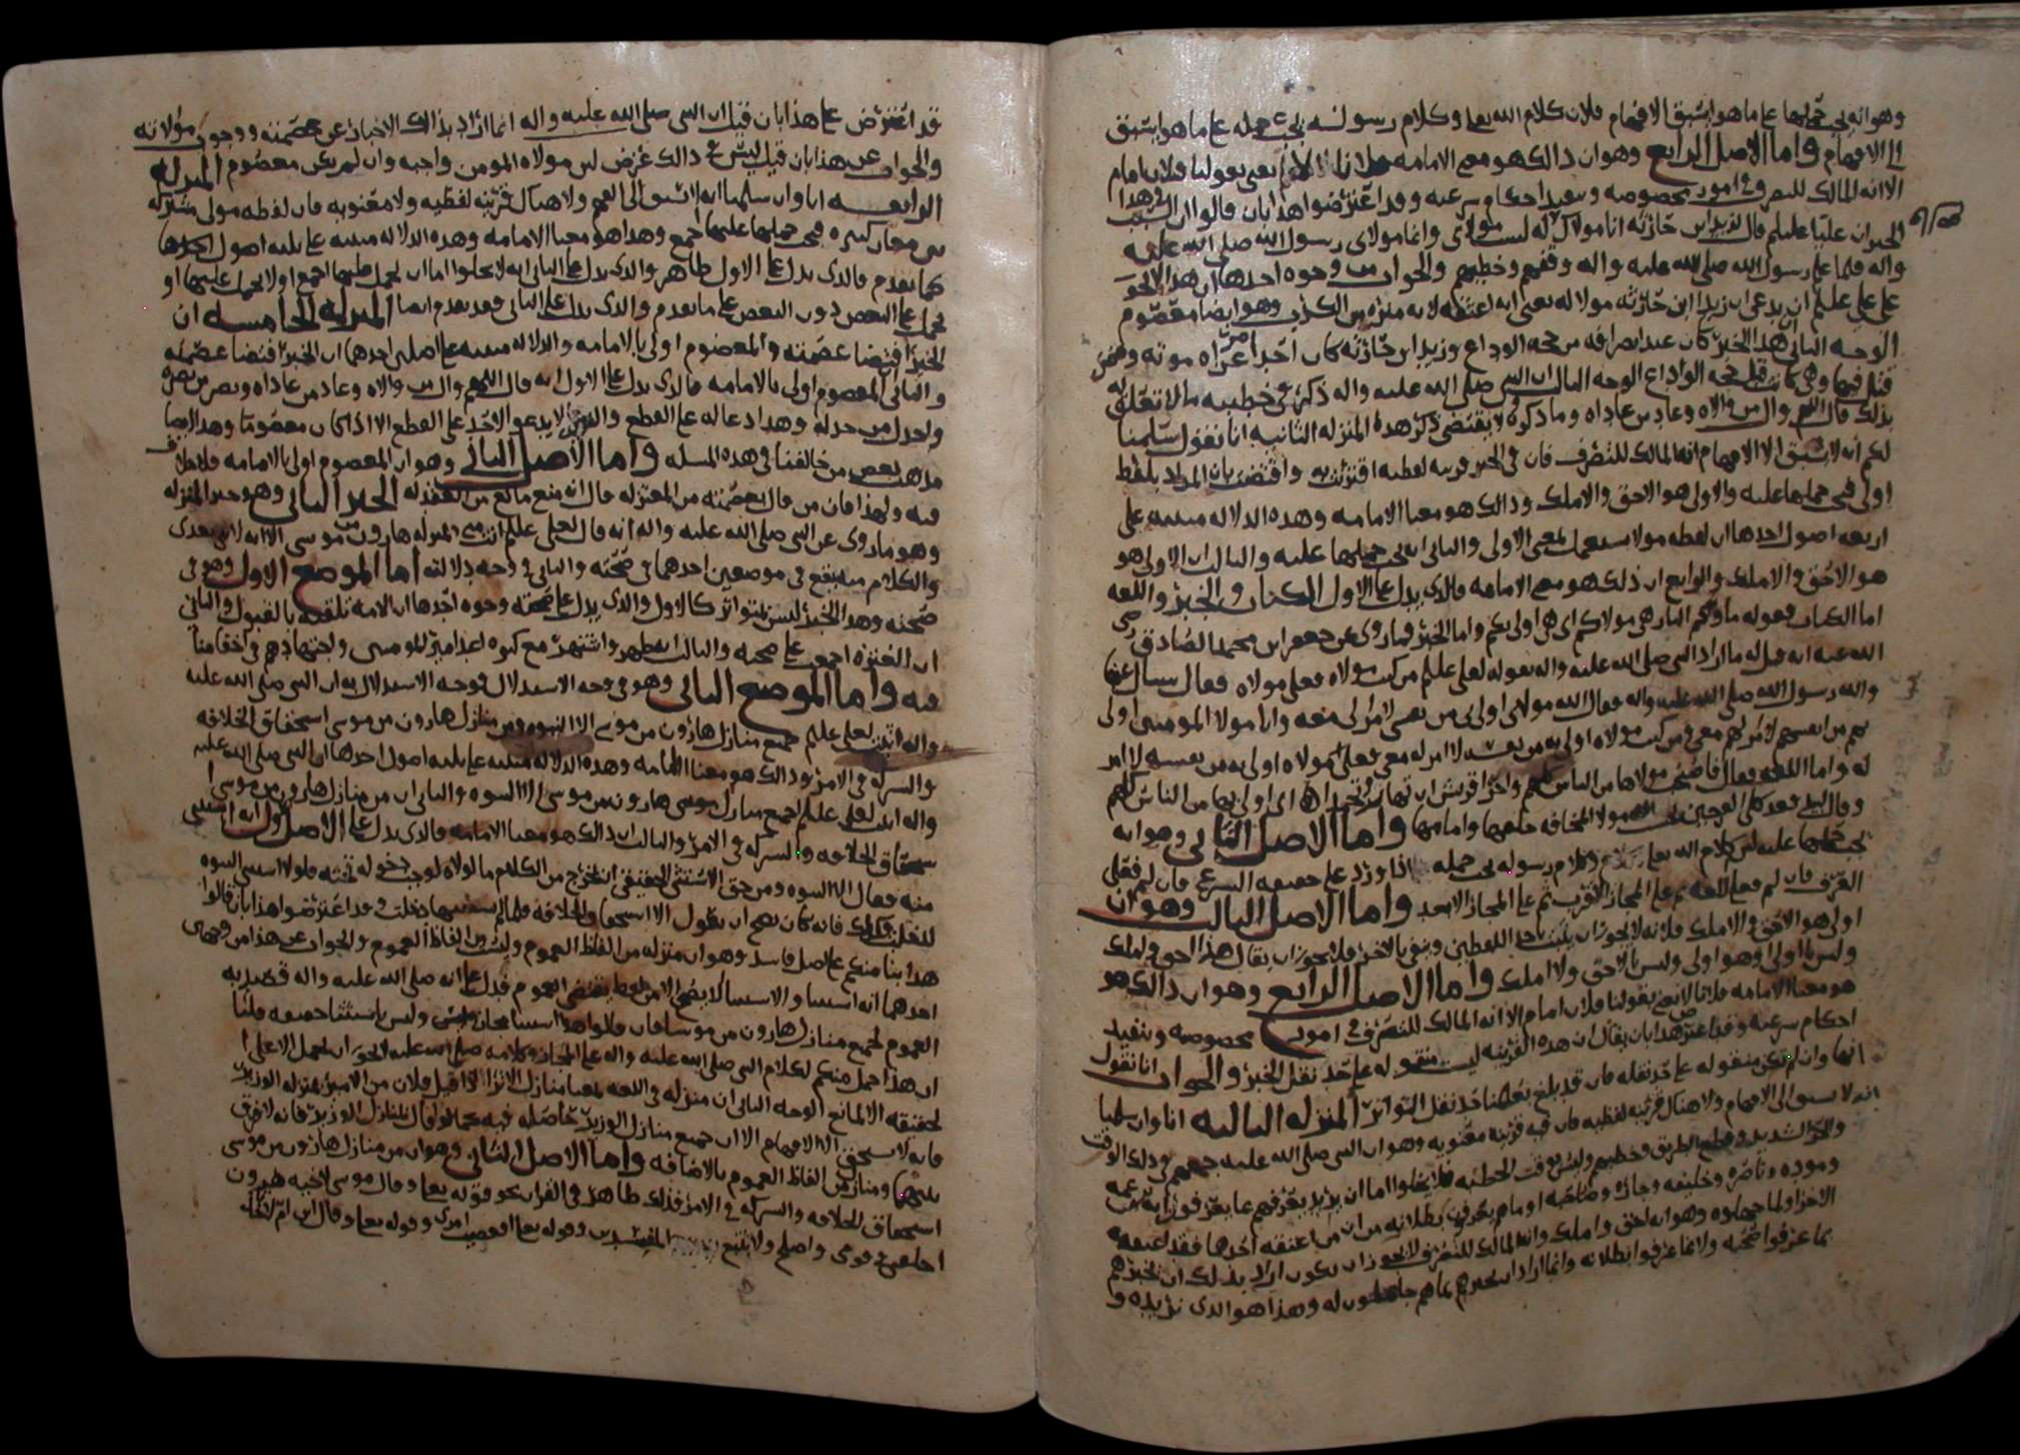 وهو انه يجب حملها على ما هو اسبق الافهام فلان كلام الله تعالى وكلام رسوله يجب حمله على ما هو اسبق
الى الافهام واما الاصل الرابع وهو ان ذالك هو معنى الامامه فلانا لا نعني بقولنا فلان امام
الا انه المالك للتصرف في امور مخصوصه وتنفيذ احكام شرعيه وقد اعترضوا هذا بان قالوا ان السبب في هذا
الخبر ان عليا عليلم قال لزيد ابن حارثه انا مولاك فقال له لست مولاي وانما مولاي رسول الله صلى الله عليه
واله فلما علم رسول الله صلى الله عليه واله وقفهم وخطبهم والجواب من وجوه احدها ان هذا لا يجوز
على علي عليلم ان يدعي ان زيد ابن حارثه مولا له بمعنى انه اعتقه لانه منزه من الكذب وهو ايضا معصوم
الوجه الثاني ان هذا الخبر كان عند انصرافه من حجه الوداع وزيد ابن حارثه كان احد امرآه موته وممن
قتل فيها وهي كانت قبل حجه الوداع الوجه الثالث ان النبي صلى الله عليه واله ذكر في خطبته ما لا تعلق له
بذلك قال اللهم وال من والاه وعاد من عاداه وما ذكروه لا يقتضي ذكر هذه المنزله الثانيه انا نقول سلمنا
لكم انه لا يسبق الى الافهام انه المالك للتصرف فان في الخبر قرينه لفظيه اقترنت به واقتضت بان المراد بلفظ
اولى فيجب حملها عليه والاولى هو الاحق والاملك وذالك هو معنا الامامه وهذه الدلاله مبنيه على
اربعه اصول احدها ان لفظه مولا تستعمل بمعنى الاولى والثاني انه يجب حملها عليه والثالث ان الاولى هو
هو الاحق والاملك والرابع ان ذلك هو معنى الامامه فالذي يدل على الاول الكتاب والخبر واللغه
اما الكتاب فقوله ماواكم النار هي مولاكم اي هي اولى بكم واما الخبر فما روي عن جعفر ابن محمد الصادق رضي
الله عنه انه قيل له ما اراد النبي صلى الله عليه واله بقوله لعلي عليلم من كنت مولاه فعلي مولاه فقال سئل عنها
والله رسول الله صلى الله عليه واله فقال الله مولاي اولى بي من نفسي لا امر لي معه وانا مولا المومنين اولى
بهم من انفسهم لا امر لهم معي ومن كنت مولاه اولى به من نفسه لا امر له معي فعلي مولاه اولى به من نفسه لا امر
له واما اللغه فقال فاصبحت مولاها من الناس كلهم واحرا قريش ان تهاب وتحمدا اي اولى بها من الناس كلهم
وقال لبيد فغدت كلا الفرجين تحسب انه مولا المخافه خلفها وامامها واما الاصل الثاني وهو انه
يجب حملها عليه فلان كلام الله تعالى وكلام رسوله يجب حمله اذا ورد على حقيقه الشرع فان لم فعلى
العرف فان لم فعلى اللغه ثم على المجاز الاقرب ثم على المجاز الابعد واما الاصل الثالث وهو ان
اولى هو الاحق والاملك فلانه لا يجوز ان يثبت باحد اللفظين وينفي بالاخر فلا يجوز ان يقال هذا احق واملك
وليس باولى او هو اولى وليس باحق ولا املك واما الاصل الرابع وهو ان ذالك هو
هو معنا الامامه فلانا لا نعني بقولنا فلان امام الا انه المالك للتصرف في امور مخصوصه وتنفيذ
احكام شرعيه وقد اعترض هذا بان يقال ان هذه القرينه ليست منقوله على حد نقل الخبر والجواب انا نقول
انها وان لم تكن منقوله على حد نقله فان قد بلغ نقلها حد نقل التواتر المنزله الثالثه انا وان سلمنا
انه لا يسبق الى الافهام ولا هناك قرينه لفظيه فان فيه قرينه معنويه وهو ان النبي صلى الله عليه جمعهم في ذلك الوقت
والحر الشديد وقطع الطريق وخطبهم وليس بوقت الخطبه فلا يخلوا اما ان يريد بعرفهم
وموده وناصره وخليفه وجاره وصاحبه او
الاخر اولما جهلوه وهو انه احق واملك وانه المالك للتصرف لا يجوز ان يكون اراد بذلك ان يخبرهم
بما عرفوا صحته ولا بما عرفوا بطلانه وانما اراد ان يخبرهم بما هم جاهلون له وهذا هو الذي نريده و
قد اعترض على هذا بان قيل ان النبي صلى الله عليه واله انما اراد بذالك الاخبار عن عصمته ووجوب مولاته
والجواب عن هذا بان قيل ليس في ذالك غرض لان مولاه المومن واجبه وان لم يكن معصوم المنزله
الرابعه انا وان سلمنا انه لا يسبق الى الفهم ولا هناك قرينه لفظيه ولا معنويه فان لفظه مولى مشتركه
بين معان كثيره فيجب حملها عليها اجمع وهذا هو معنا الامامه وهذه الدلاله مبنيه على ثلثه اصول احدها
كما تقدم فالذي يدل على الاول ظاهر والذي يدل على الثاني انه لا يخلوا اما ان يحمل عليها اجمع او لا يحمل عليها او
يحمل على البعض دون البعض على ما تقدم والذي يدل على الثالث فقد تقدم ايضا المنزله الخامسه ان
الخبر اقتضا عصمته والمعصوم اولى بالامامه والدلاله مبنيه على اصلين احدهما ان الخبر اقتضا عصمته
والثاني ان المعصوم اولى بالامامه فالذي يدل على الاول انه قال اللهم وال من والاه وعاد من عاداه وانصر من نصره
واخذل من خذله وهذا دعا له على القطع والنبي لا يدعو لاحد على القطع الا اذا كان معصوما وهذا ايضا
مذهب بعض من خالفنا في هذه المسله واما الاصل الثاني وهو ان المعصوم اولى بالامامه فلا خلاف
فيه ولهذا فان من قال بعصمته من المعتزله قال انه منع مانع من العقد له الخبر الثاني وهو خبر المنزله
وهو ما روي عن النبي صلى الله عليه واله انه قال لعلي عليلم انت مني بمنزله هارون من موسى الا انه لا نبي بعدي
والكلام منه يقع في موضعين احدهما في صحته والثاني في وجه دلالته اما الموضع الاول وهو في
صحته وهذا الخبر ليس بمتواتر كالاول والذي يدل على صحته وجوه احدها ان الامه تلقته بالقبول والثاني
ان العتره اجمعت على صحته والثالث انه ظهر واشتهر مع كثره اعدا امير المومنين واجتهادهم في اخفا مناقبه
فيه واما الموضع الثاني وهو في وجه الاستدلال فوجه الاستدلال به ان النبي صلى الله عليه
واله اثبت لعلي عليلم جميع منازل هارون من موسى الا النبوه ومن منازل هارون من موسى استحقاق الخلافه
والشركه في الامر وذالك هو معنا الامامه وهذه الدلاله مبنيه على ثلثه اصول احدها ان النبي صلى الله عليه
واله اثبت لعلي عليلم جميع منازل هارون من موسى الا النبوه والثاني ان من منازل هارون من موسى
استحقاق الخلافه والشركه في الامر والثالث ان ذالك هو معنا الامامه فالذي يدل على الاصل الاول انه استثنى
منه فقال الا النبوه ومن حق الاستثنى الحقيقي ان يخرج من الكلام ما لولاه لوجب دخوله تحته فلولا استثنى النبوه
لدخلت فانه كان يصح ان يقول الا استحقاق الخلافه فلما لم يستثنها دخلت وقد اعترضوا هذا بان قالوا
هذا بنا منكم على اصل فاسد وهو ان منزله من الفاظ العموم وليست من الفاظ العموم والجواب عن هذا من وجهين
احدهما انه استثنا والاستثنا لا يصح الا من لفظ يقتضي العموم فدل على انه صلى الله عليه واله قصد به
العموم لجميع منازل هارون من موسى فان قالوا هذا استثنا مجازي وليس باستثنا حقيقه قلنا
ان هذا حمل منكم لكلام النبي صلى الله عليه واله على المجاز وكلامه صلى الله عليه لا يجوز ان يحمل الا على
الحقيقه الا لمانع الوجه الثاني ان منزله في اللغه بمعنا منازل الا ترا انه اذا قيل فلان من الامير بمنزله الوزير
فانه لا يسبق الى الافهام الا ان جميع منازل الوزير حاصله فيه كما لو قال بمنازل الوزير فانه لا فرق
بينهما ومنازل من الفاظ العموم بالاضافه واما الاصل الثاني وهو ان من منازل هارون من موسى
استحقاق الخلافه والشركه في الامر فذلك ظاهر في القران نحو قوله تعالى وقال موسى لاخيه هرون
اخلفني في قومي واصلح ولا تتبع سبيل المفسدين وقوله تعالى افعصيت امري وقوله تعالى وقال ابن ام